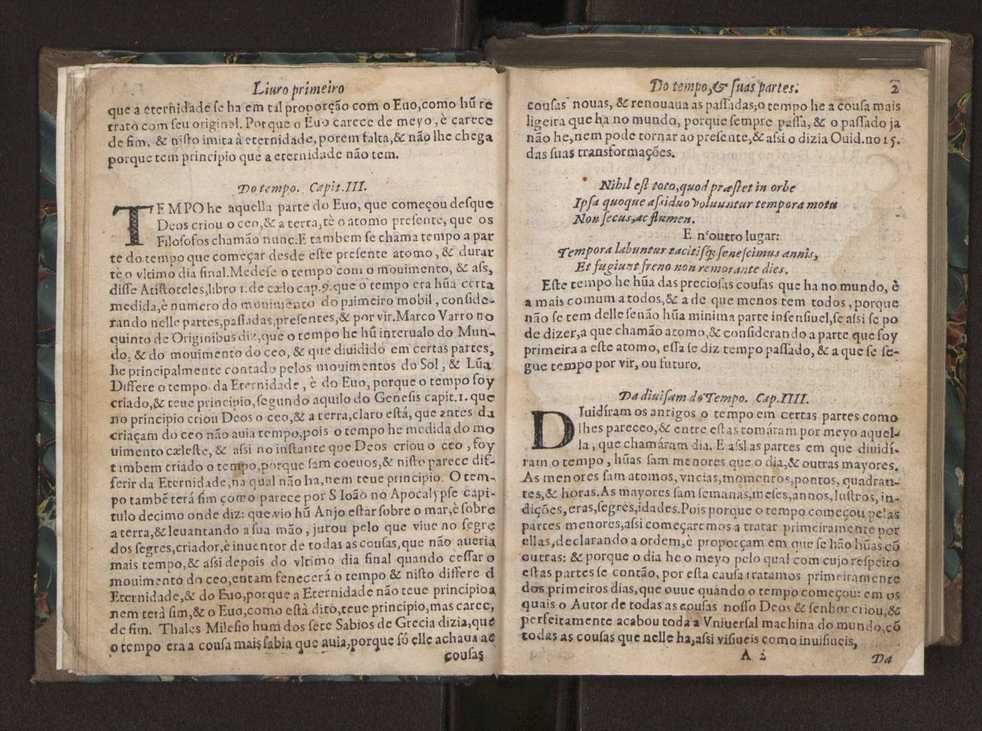 Liuro primeiro
que a eternidade se ha em tal proporção com o Euo,como hũ re
trato com seu original. Porque o Euo carece de meyo, è carece
de fim. & nisto imita à eternidade, porem falta,& não lhe chega
porque tem principio que a eternidade não tem.
Do tempo. Capit.III.
TEMPO he aquella parte do Euo, que começou desque
Deos criou o ceo,& a terra,tè o atomo presente, que os
Filosofos chamão nunc.E tambem se chama tempo a par
te do tempo que começar desde este presente atomo, & durar
tè o vltimo dia final.Medese o tempo com o mouimento, & ass,
disse Atistoteles,libro 1.de cælo cap.9.que o tempo era hũa certa
medida,è numero do mouimento do primeiro mobil, conside-
rando nelle partes,passadas,presentes,& por vir.Marco Varro no
quinto de Originibus diz,que o tempo he hũ interualo do Mun-
do, & do mouimento do ceo, & que diuidido em certas partes,
he principalmente contado pelos mouimentos do Sol, & Lũa
Differe o tempo da Eternidade, è do Euo, porque o tempo foy
criado,& teue principio,segundo aquilo do Genesis capit.1. que
no principio criou Deos o ceo,& a terra,claro està, que antes da
criaçam do ceo não auia tempo,pois o tempo he medida do mo
uimento cæleste, & assi no instante que Deos criou o ceo, foy
tambem criado o tempo,porque sam coeuos,& nisto parece dif-
ferir da Eternidade,na qual não ha,nem teue principio. O tem-
po tambẽ terá fim como parece por S Ioão no Apocalypse capi-
tulo decimo onde diz: que vio hũ Anjo estar sobre o mar,è sobre
a terra,& leuantando a sua mão, jurou pelo que viue no segre
dos segres,criador,è inuentor de todas as cousas,que não aueria
mais tempo,& assi depois do vltimo dia final quando cessar o
mouimento do ceo,entam fenecerá o tempo & nisto differe d
Eternidade,& do Euo,porque a Eternidade não teue principio,
nem terà fim,& o Euo,como està dito,teue principio,mas carec,
de fim. Thales Milesio hum dos sete Sabios de Grecia dizia,que
o tempo era a cousa mais sabia que auia,porque só elle achaua ae
cousas
Do tempo,& suas partes. 2
cousas nouas, & renouaua as passadas;o tempo he a cousa mais
ligeira que ha no mundo, porque sempre passa, & o passado ja
não he,nem pode tornar ao presente,& assi o dizia Ouid.no 15.
das suas transformações.
Nihil est toto,quod præstet in orbe
Ipsa quoque assiduo voluuntur tempora motu
Non secus,ac flumen.
E n'outro lugar:
Tempora labuntur tacitisq; senescimus annis,
Et fugiunt freno non remorante dies.
Este tempo he hũa das preciosas cousas que ha no mundo, è
a mais comum a todos,& a de que menos tem todos, porque
não se tem delle senão hũa minima parte insensiuel,se assi se po
de dizer,a que chamão atomo,& considerando a parte que foy
primeira a este atomo, essa se diz tempo passado, & a que se se-
gue tempo por vir, ou futuro.
Da diuisam do Tempo. Cap.IIII.
DIuidiram os antigos o tempo em certas partes como
lhes pareceo,& entre estas tomàram por meyo aquel-
la, que chamáram dia. E assi as partes em que diuidi-
ram o tempo, hũas sam menores que o dia,& outras mayores.
As menores sam atomos, vncias,momentos,pontos, quadran-
tes,& horas.As mayores sam semanas,meses,annos,lustros,in-
dições,eras,segres,idades.Pois porque o tempo começou pelas
partes menores,assi começaremos a tratar primeiramente por
ellas,declarando a ordem,è proporçam em que se hão hũas cõ
outras: & porque o dia he o meyo pelo qual com cujo respeiro
estas partes se contão, por esta causa tratamos primeiramente
dos primeiros dias,que ouue quando o tempo começou: em os
quais o Autor de todas as cousas nosso Deos & senhor criou,&
perfeitamente acabou toda a Vniuersal machina do mundo,cõ
todas as cousas que nelle ha,assi visiueis como inuisiueis,
A 2 Da